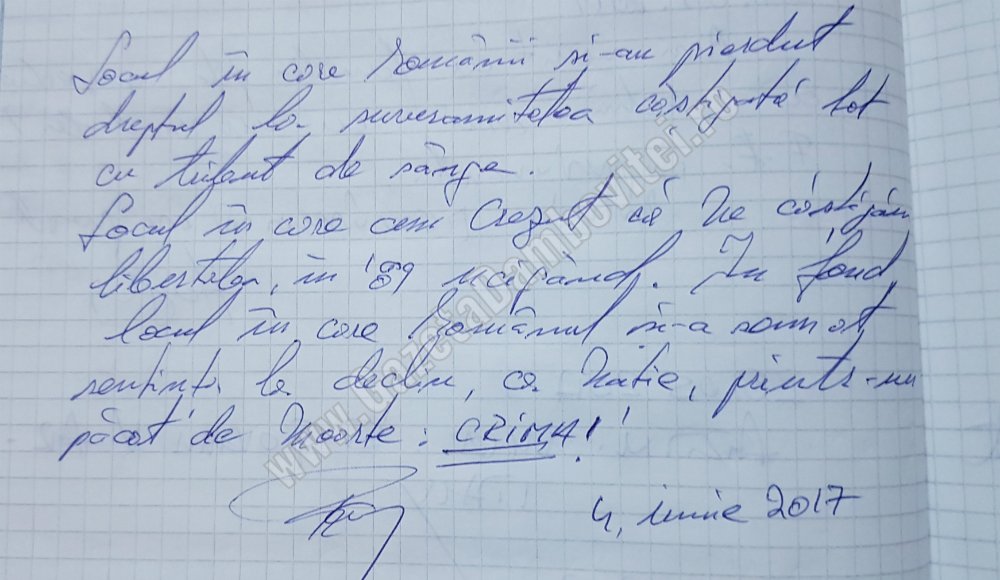 Locul în care românii și-au pierdut
dreptul la suveranitatea câștigată tot
cu tribut de sânge.
Locul în care am crezut că ne câștigăm
libertatea, în '89 ucigând. În fond,
locul în care românul și-a semnat
sentința la declin, ca Nație, printr-un
păcat de Moarte: CRIMA!
4, iunie 2017
www.GazetaDambovitei.ro